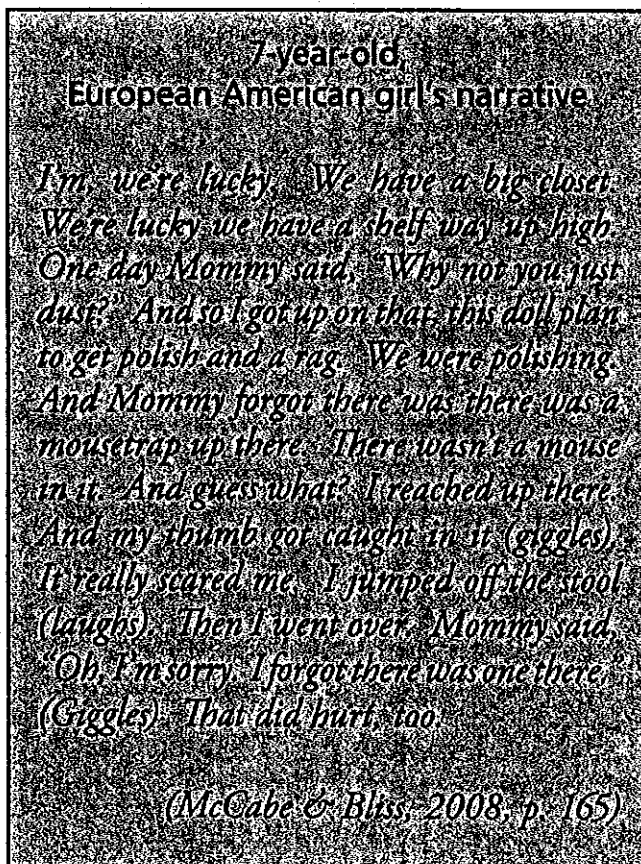 7-year-old
European American girl's narrative
I'm, we're lucky. We have a big closet.
We're lucky we have a shelf way up high.
One day Mommy said, "Why not you just
dust?" And so I got up on that, this doll plan
to get polish and a rag. We were polishing.
And Mommy forgot there was, there was a
mousetrap up there. There wasn't a mouse
in it. And guess what? I reached up there.
And my thumb got caught in it (giggles).
It really scared me. I jumped off the stool
(laughs). Then I went over. Mommy said,
"Oh, I'm sorry. I forgot there was one there.
(Giggles). That did hurt, too.
(McCabe & Bliss, 2008, p. 165)